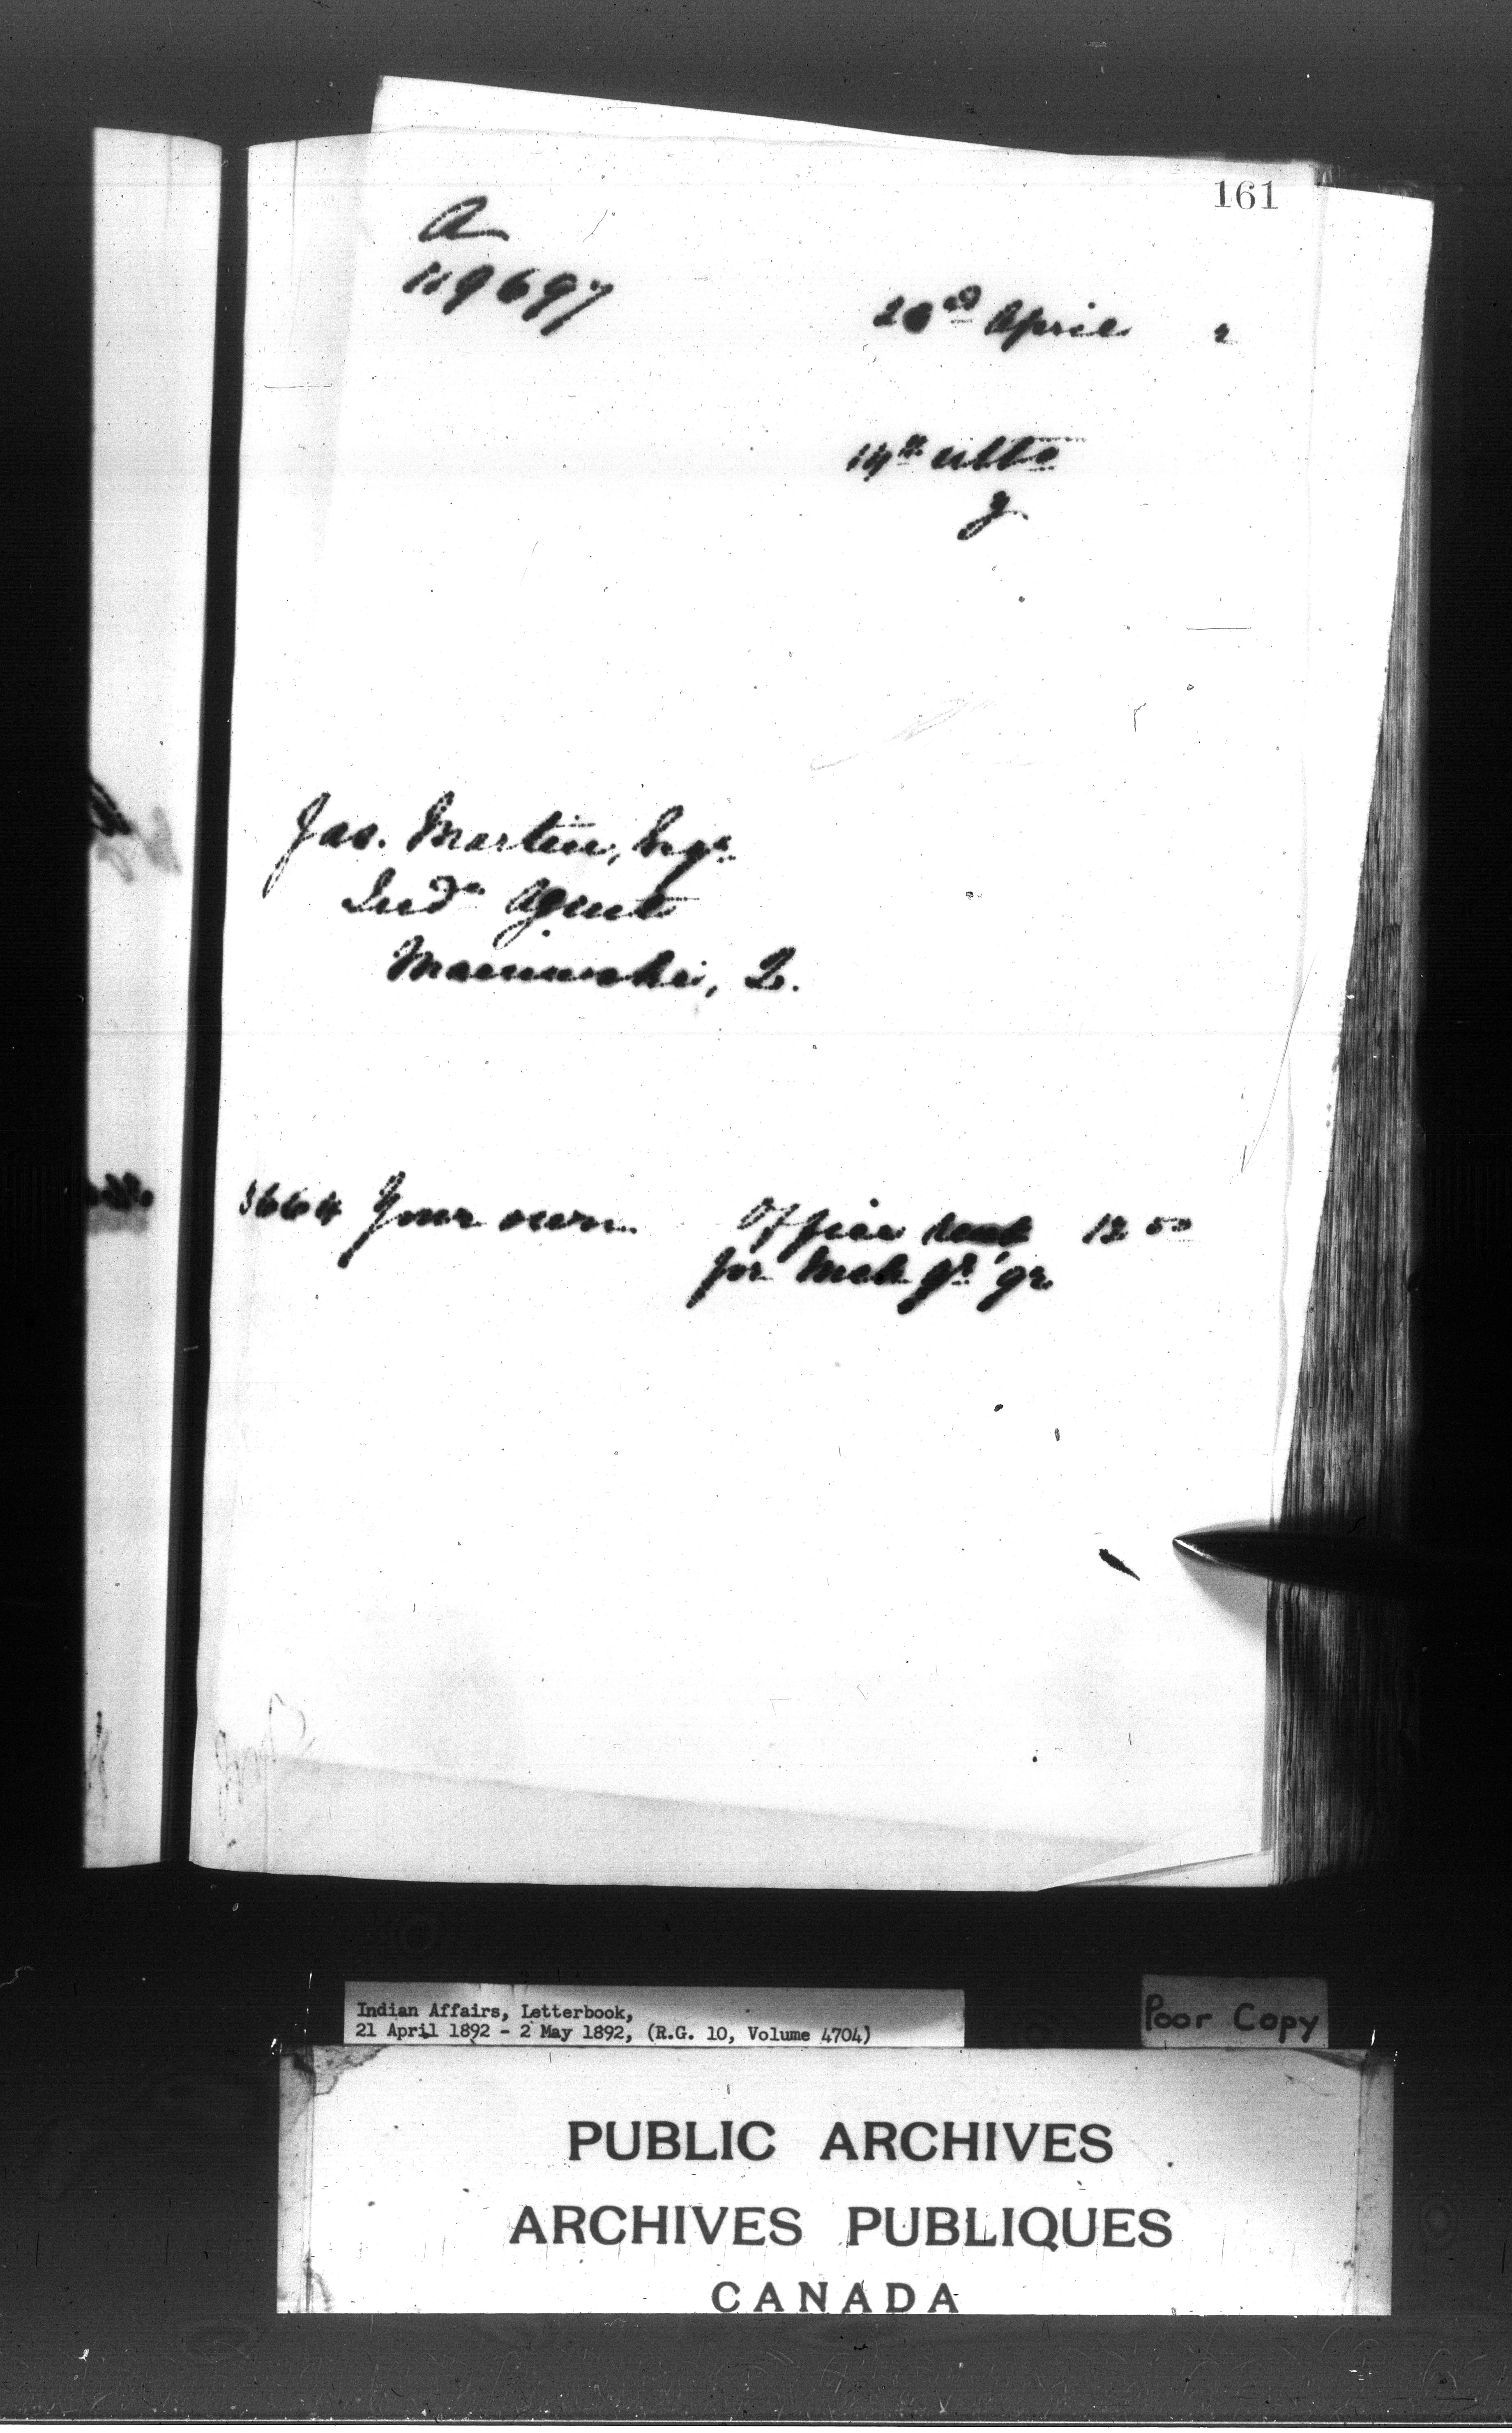 161
A
119697
23rd April 2
14th ulto
y
Jas. Martin, Esqr.
Indn Agent
Maniwaki, Q.
3664 Your own Office rent 12 50
for Mch qr '92
Indian Affairs, Letterbook,
21 April 1892 - 2 May 1892, (R.G. 10, Volume 4704)
Poor Copy
PUBLIC ARCHIVES
ARCHIVES PUBLIQUES
CANADA